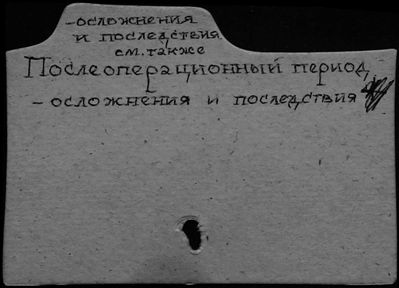 -осложнения
и последствия
см. также
Послеоперационный период
- осложнения и последствия